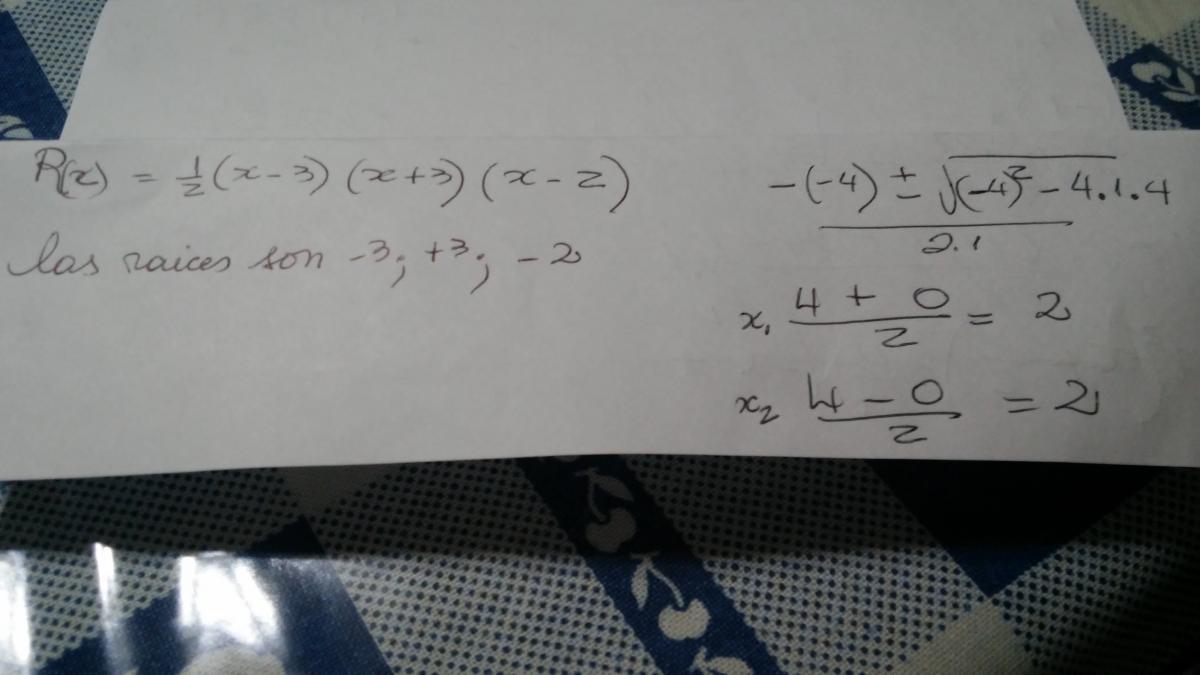 R(x) = 1/2 (x-3) (x+3) (x-2)
las raices son -3; +3; -2
-(-4) ± √(-4)² - 4.1.4
2.1
x₁ 4 + 0 / 2 = 2
x₂ 4 - 0 / 2 = 2